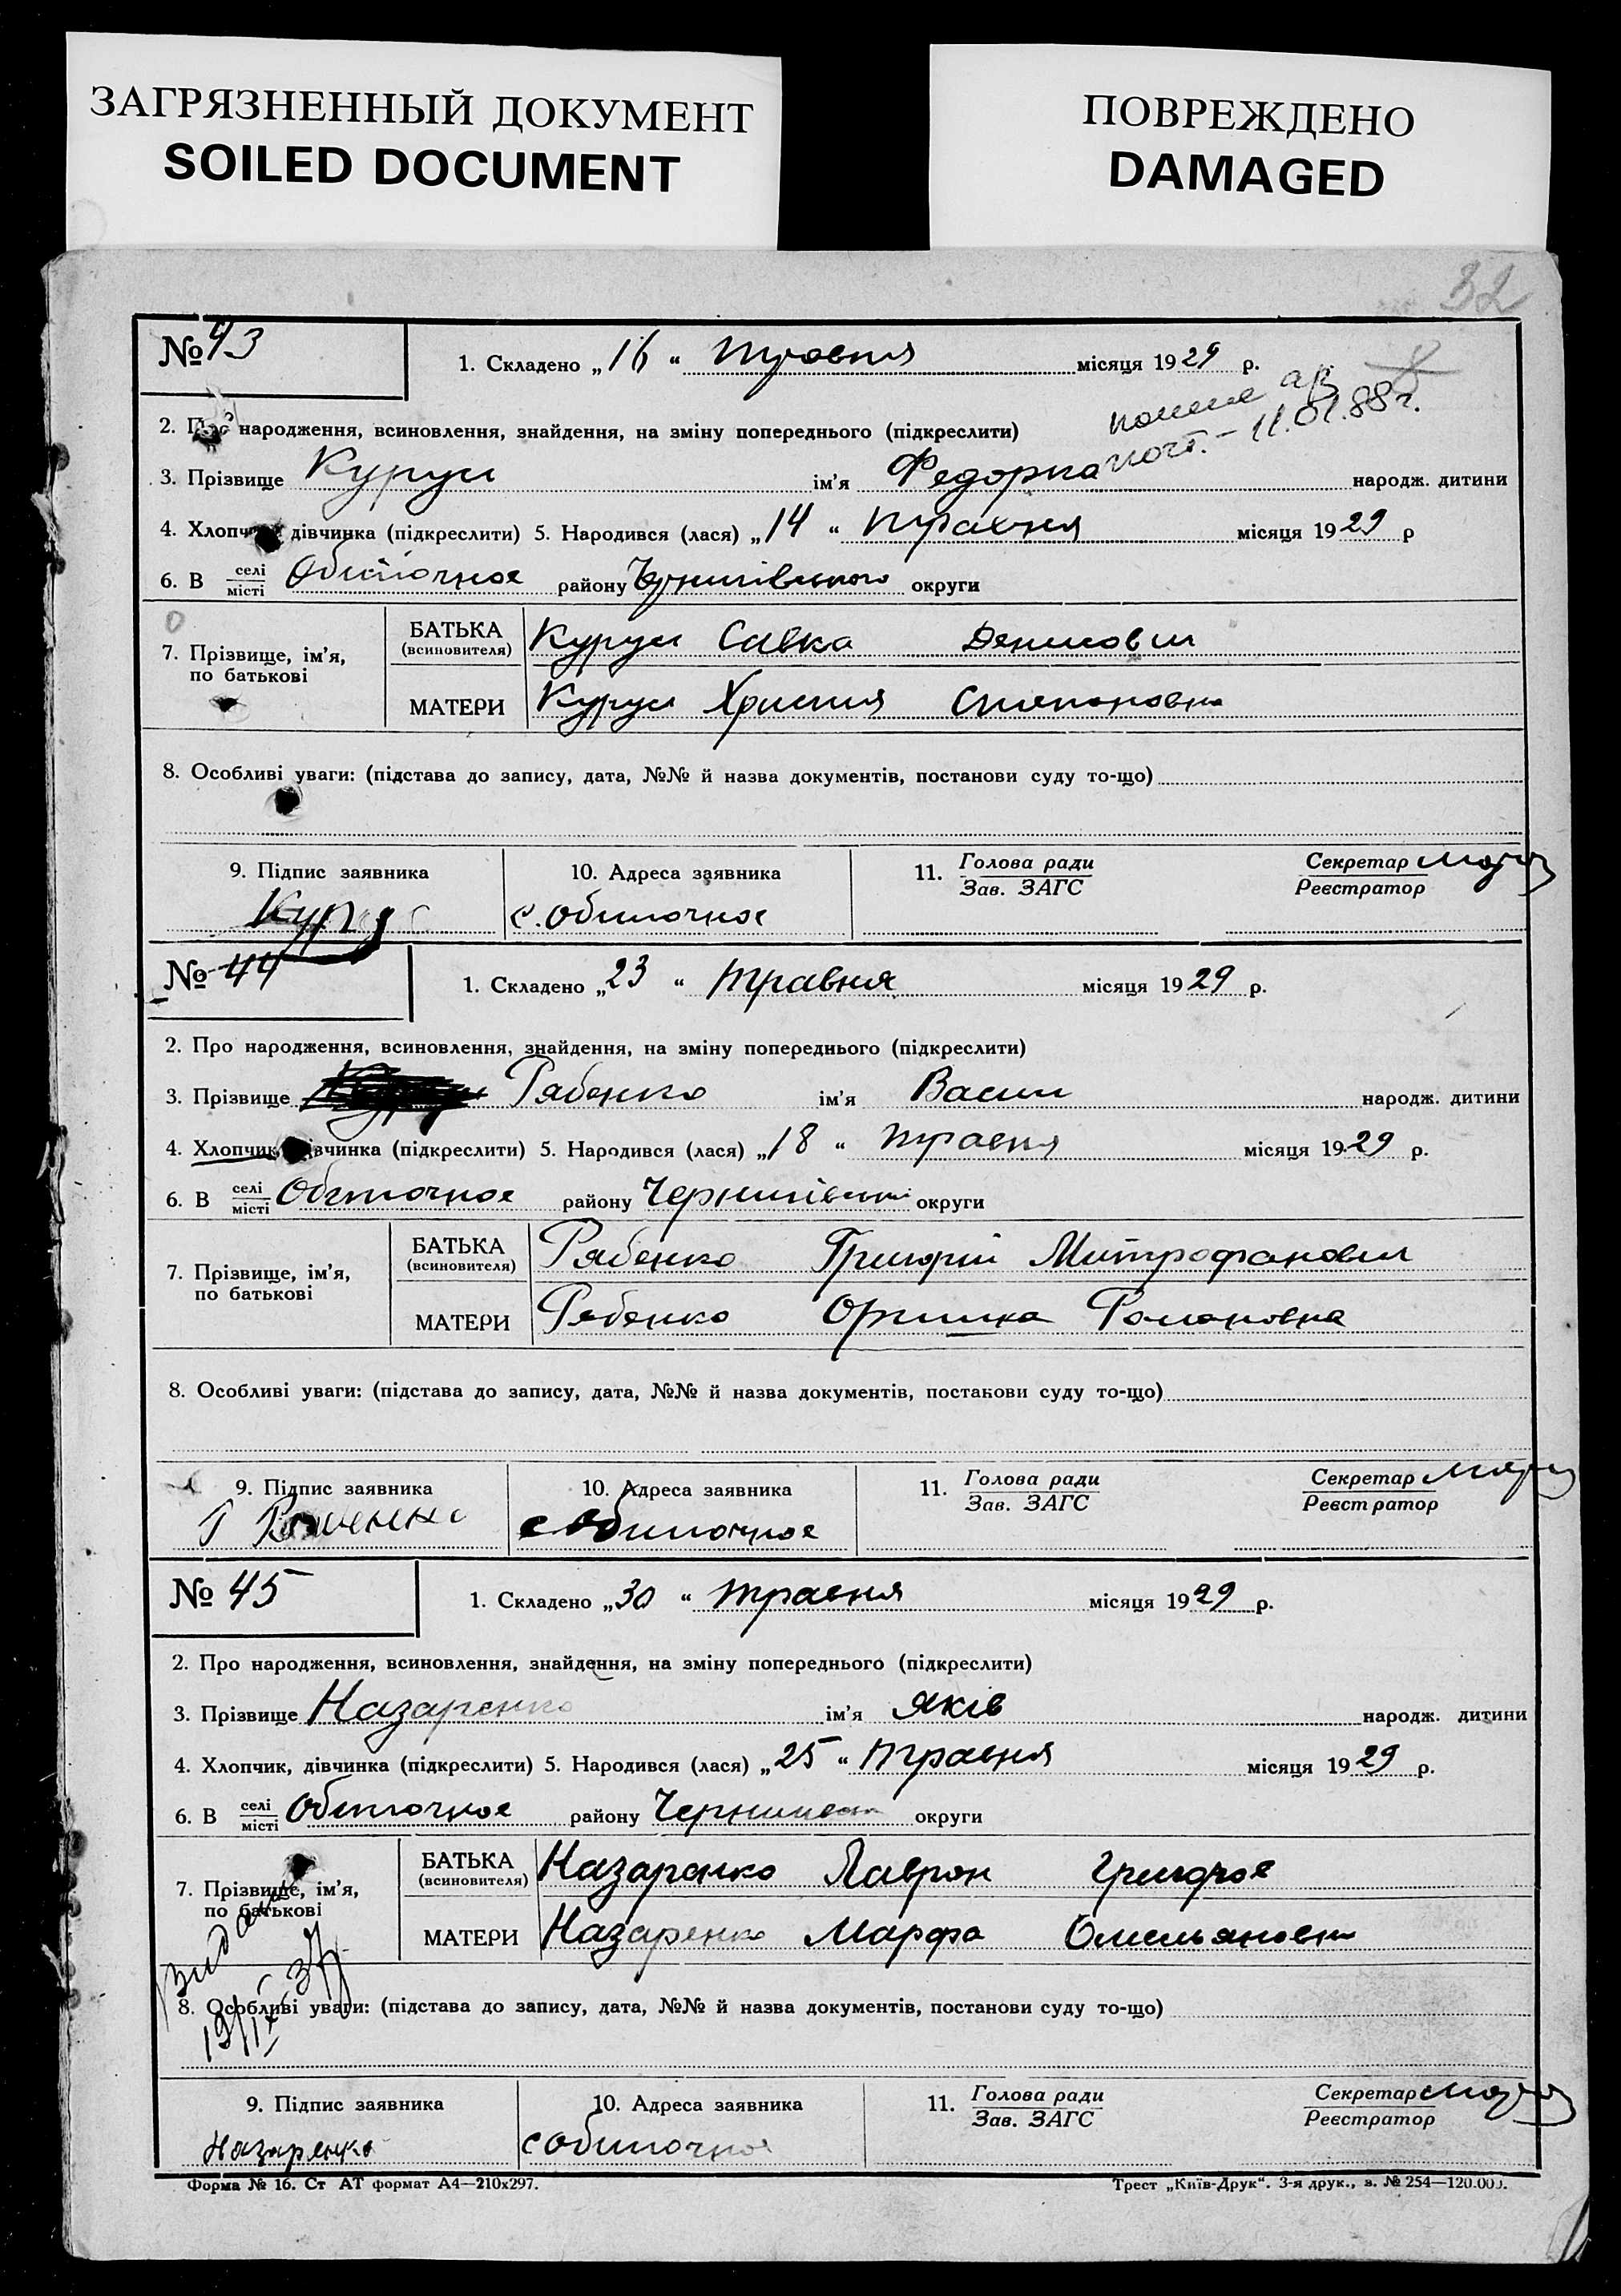 ЗАГРЯЗНЕННЫЙ ДОКУМЕНТ
SOILED DOCUMENT
ПОВРЕЖДЕНО
DAMAGED
32
№ 43
1. Складено „16“ травня місяця 1929 р.
2. народження, всиновлення, знайдення, на зміну попереднього (підкреслити)
11.01.88 г.
3. Прізвище Курус ім'я Федорка народж. дитини
4. дівчинка (підкреслити) 5. Народився (лася) „14“ травня місяця 1929 р
6. В селі/місті Обиточное району Чернигівського округи
7. Прізвище, ім'я, по батькові
БАТЬКА (всиновителя) Курус Савка Денисович
МАТЕРИ Курус Христя Степановна
8. Особливі уваги: (підстава до запису, дата, №№ й назва документів, постанови суду то-що)
9. Підпис заявника 10. Адреса заявника 11. Голова ради/Зав. ЗАГС Секретар/Реєстратор
Курус с. Обиточное
№ 44
1. Складено „23“ травня місяця 1929 р.
2. Про народження, всиновлення, знайдення, на зміну попереднього (підкреслити)
3. Прізвище Рябенко ім'я Васил народж. дитини
4. Хлопчик, дівчинка (підкреслити) 5. Народився (лася) „18“ травня місяця 1929 р.
6. В селі/місті Обиточное району Чернигівськ округи
7. Прізвище, ім'я, по батькові
БАТЬКА (всиновителя) Рябенко Григорій Митрофанович
МАТЕРИ Рябенко Оришка Романовна
8. Особливі уваги: (підстава до запису, дата, №№ й назва документів, постанови суду то-що)
9. Підпис заявника 10. Адреса заявника 11. Голова ради/Зав. ЗАГС Секретар/Реєстратор
с Обиточное
№ 45
1. Складено „30“ травня місяця 1929 р.
2. Про народження, всиновлення, знайдення, на зміну попереднього (підкреслити)
3. Прізвище Назаренко ім'я Яків народж. дитини
4. Хлопчик, дівчинка (підкреслити) 5. Народився (лася) „25“ травня місяця 1929 р.
6. В селі/місті Обиточное району округи
7. Прізвище, ім'я, по батькові
БАТЬКА (всиновителя) Назаренко Лаврон
МАТЕРИ Назаренко Марфа Омельяновн
8. Особливі уваги: (підстава до запису, дата, №№ й назва документів, постанови суду то-що)
9. Підпис заявника 10. Адреса заявника 11. Голова ради/Зав. ЗАГС Секретар/Реєстратор
Назаренко с Обиточное
Форма № 16. Ст АТ формат А4—210х297. Трест „Київ-Друк“. 3-я друк., з. № 254—120.000.